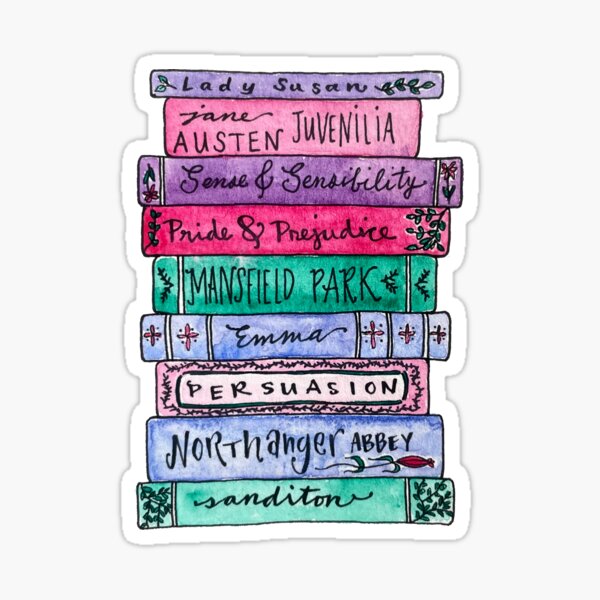 Lady Susan
jane
AUSTEN JUVENILIA
Sense & Sensibility
Pride & Prejudice
MANSFIELD PARK
Emma
PERSUASION
Northanger ABBEY
sanditon